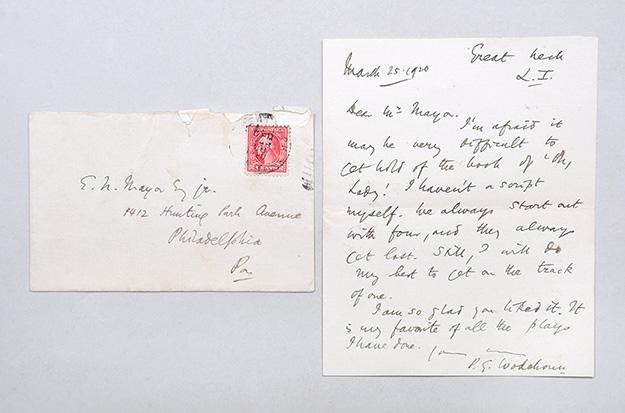 E. N. Mayor Esq jr.
1412 Hunting Park Avenue
Philadelphia
Pa
2 CENTS 2
Great Neck
March 25. 1920
L. I.
Dear Mr Mayor.
I'm afraid it
may be very difficult to
get hold of the book of "Oh,
Lady! I haven't a script
myself. We always start out
with four, and they always
get lost. Still, I will do
my best to get on the track
of one.
I am so glad you liked it. It
is my favorite of all the plays
I have done.
P. G. Wodehouse